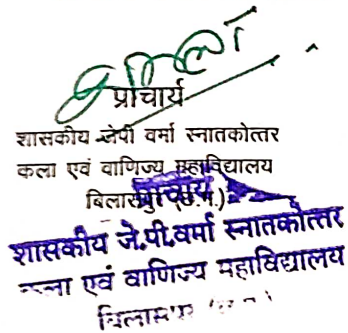 प्राचार्य
शासकीय जेपी वर्मा स्नातकोत्तर
कला एवं वाणिज्य महाविद्यालय
बिलासपुर (छ.ग.)
प्राचार्य
शासकीय जे.पी.वर्मा स्नातकोत्तर
कला एवं वाणिज्य महाविद्यालय
बिलासपुर